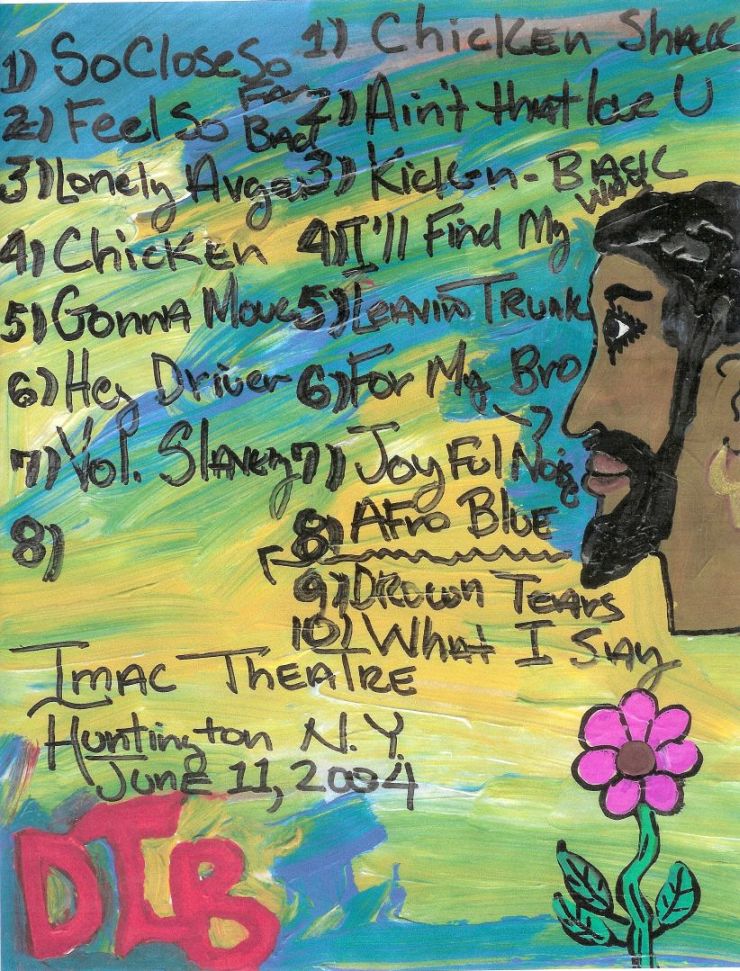 1) So Close So Far
2) Feel So Bad
3) Lonely Avge
4) Chicken
5) Gonna Move
6) Hey Driver
7) Vol. Slavery
8)
1) Chicken Shack
2) Ain't that love U
3) Kicken-Back
4) I'll Find My Way
5) Leavin Trunk
6) For My Bro
7) Joyful Noise
8) Afro Blue
9) Drown Tears
10) What I Say
Imac Theatre
Huntington N.Y.
June 11, 2004
DTB